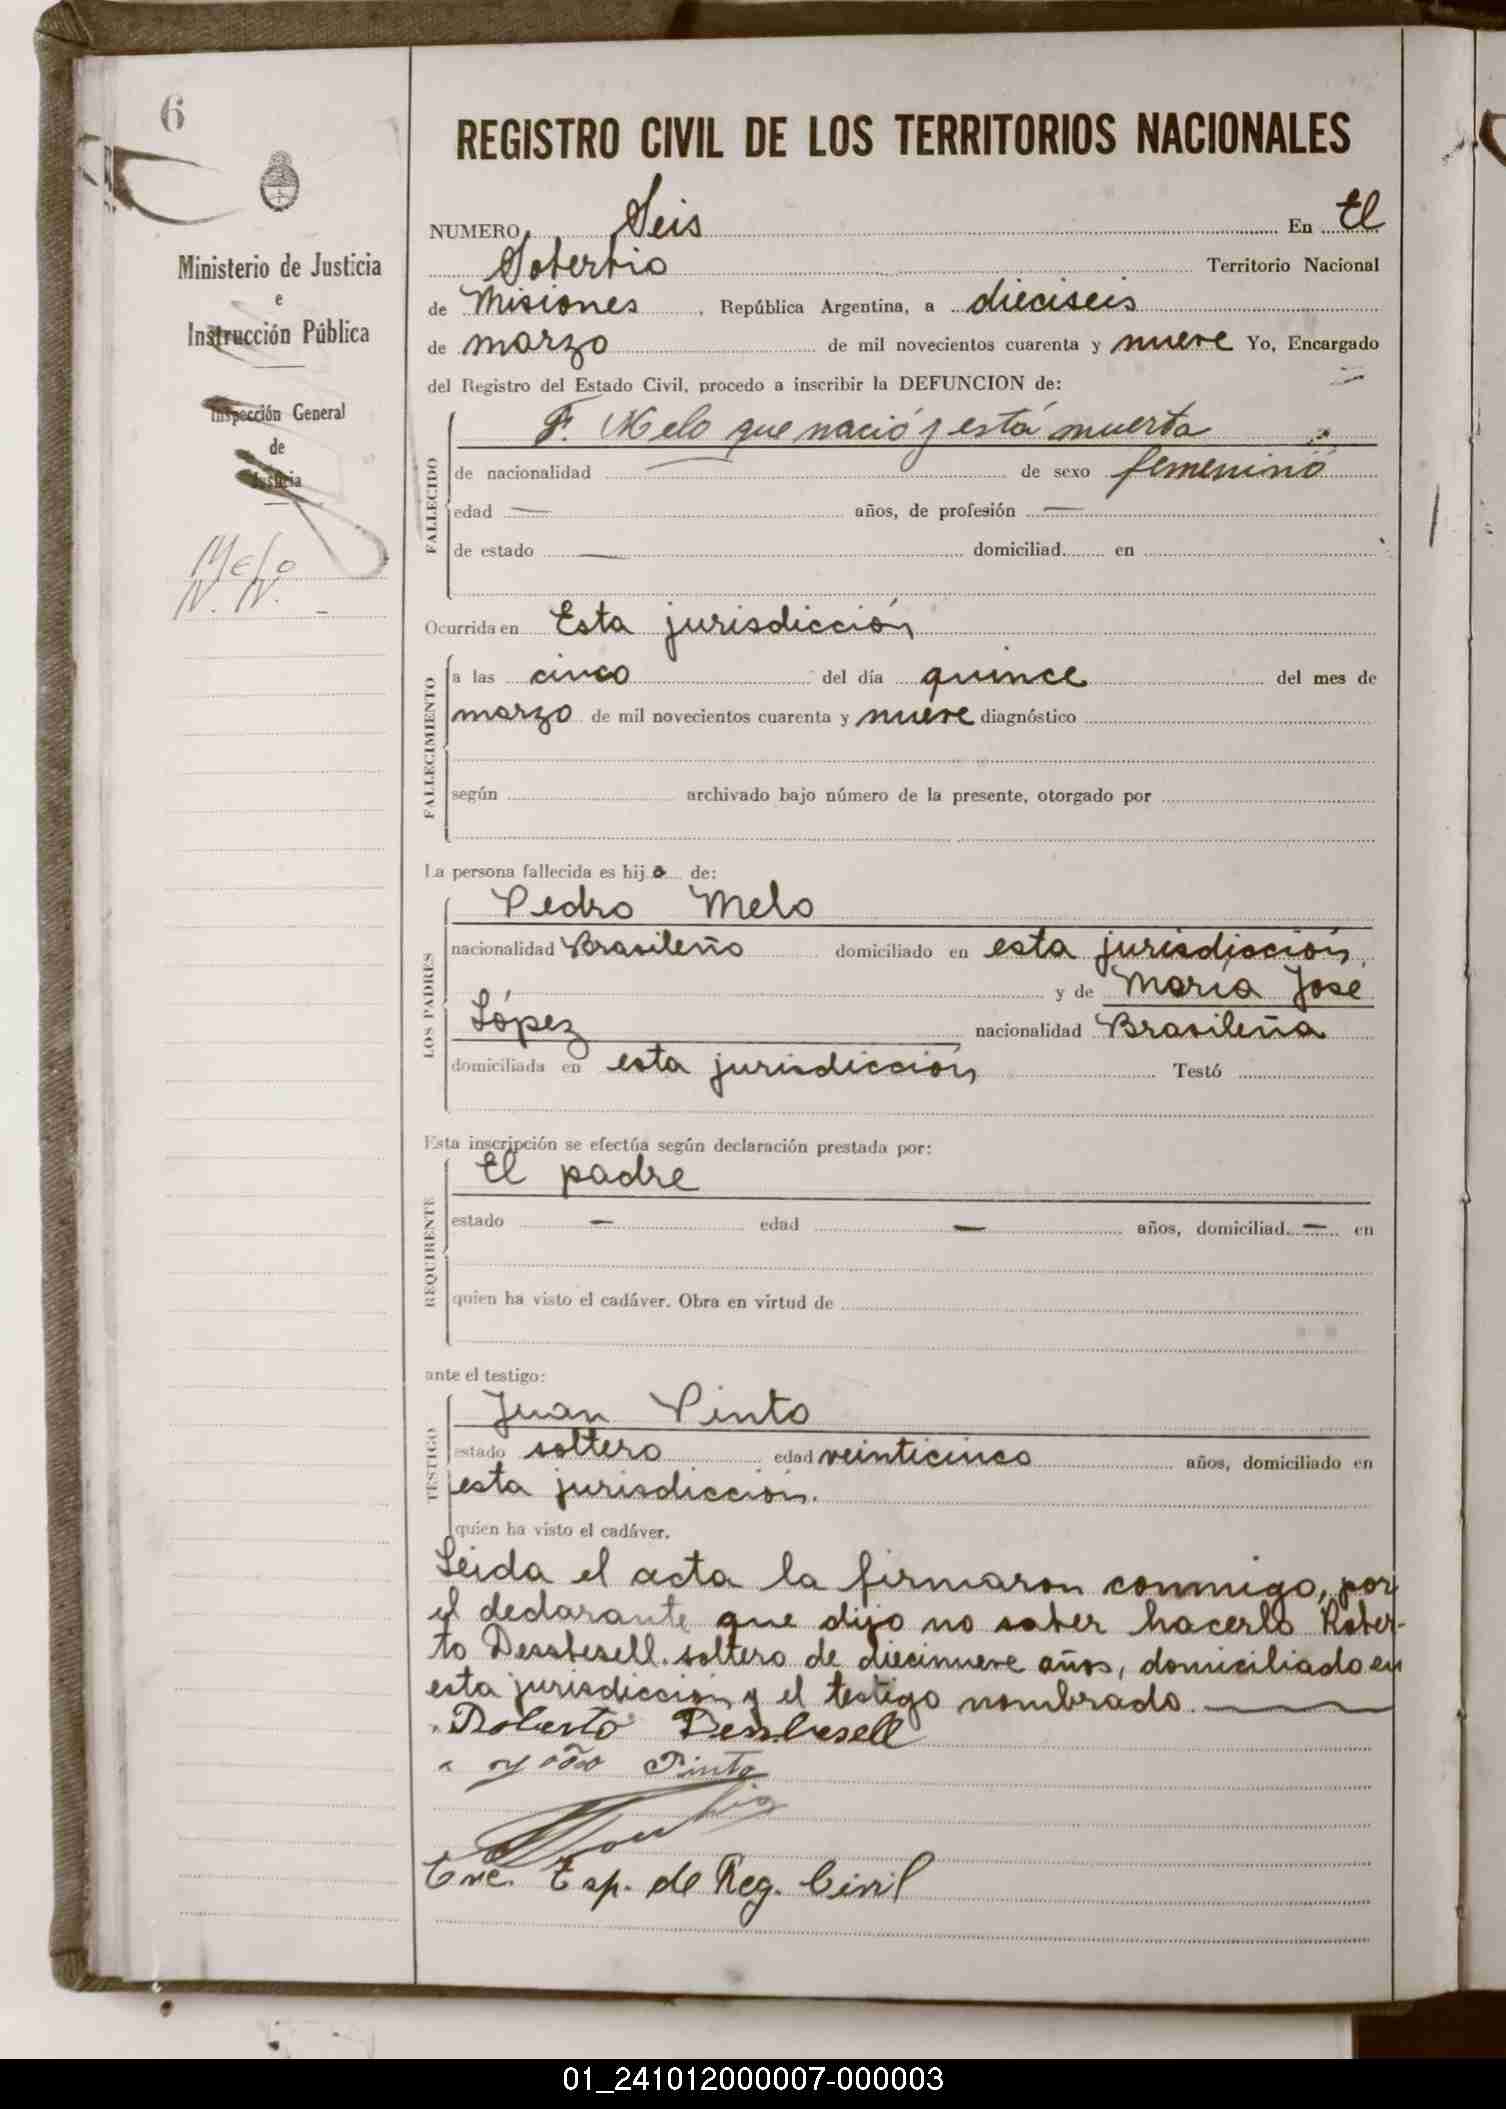 6
Ministerio de Justicia
e
Instrucción Pública
Inspección General
de
Justicia
Melo
N. N. -
REGISTRO CIVIL DE LOS TERRITORIOS NACIONALES
NUMERO Seis En El
Soberbio Territorio Nacional
de Misiones, República Argentina, a dieciseis
de marzo de mil novecientos cuarenta y nueve Yo, Encargado
del Registro del Estado Civil, procedo a inscribir la DEFUNCION de:
FALLECIDO
F. Melo que nació y está muerta
de nacionalidad — de sexo femenino
edad — años, de profesión —
de estado — domiciliad en
Ocurrida en Esta jurisdicción
FALLECIMIENTO
a las cinco del día quince del mes de
marzo de mil novecientos cuarenta y nueve diagnóstico
según archivado bajo número de la presente, otorgado por
La persona fallecida es hija de:
LOS PADRES
Pedro Melo
nacionalidad Brasileño domiciliado en esta jurisdicción,
y de María José
López nacionalidad Brasileña
domiciliada en esta jurisdicción Testó
Esta inscripción se efectúa según declaración prestada por:
REQUIRENTE
El padre
estado — edad — años, domiciliad — en
quien ha visto el cadáver. Obra en virtud de
ante el testigo:
TESTIGO
Juan Pinto
estado soltero edad veinticinco años, domiciliado en
esta jurisdicción.
quien ha visto el cadáver.
Leida el acta la firmaron conmigo, por
el declarante que dijo no saber hacerlo Rober-
to Dessbesell. soltero de diecinueve años, domiciliado en
esta jurisdicción y el testigo nombrado. —
Roberto Dessbesell
João Pinto
Enc. Esp. de Reg. Civil
01_241012000007-000003